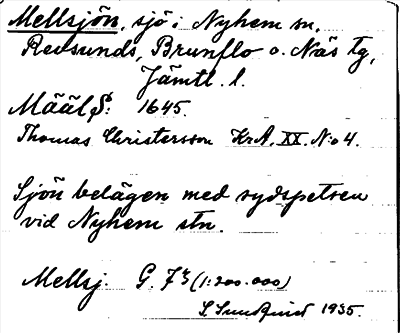 Mellsjön, sjö i Nyhem sn,
Revsunds, Brunflo o. Näs tg,
Jämtl. l.
Määl S: 1645.
Thomas Christersson KrA. XX. N:o 4.
Sjön belägen med sydspetsen
vid Nyhem stn.
Mellsj. G. 73 (1:200.000)
S. Sundqvist 1935.